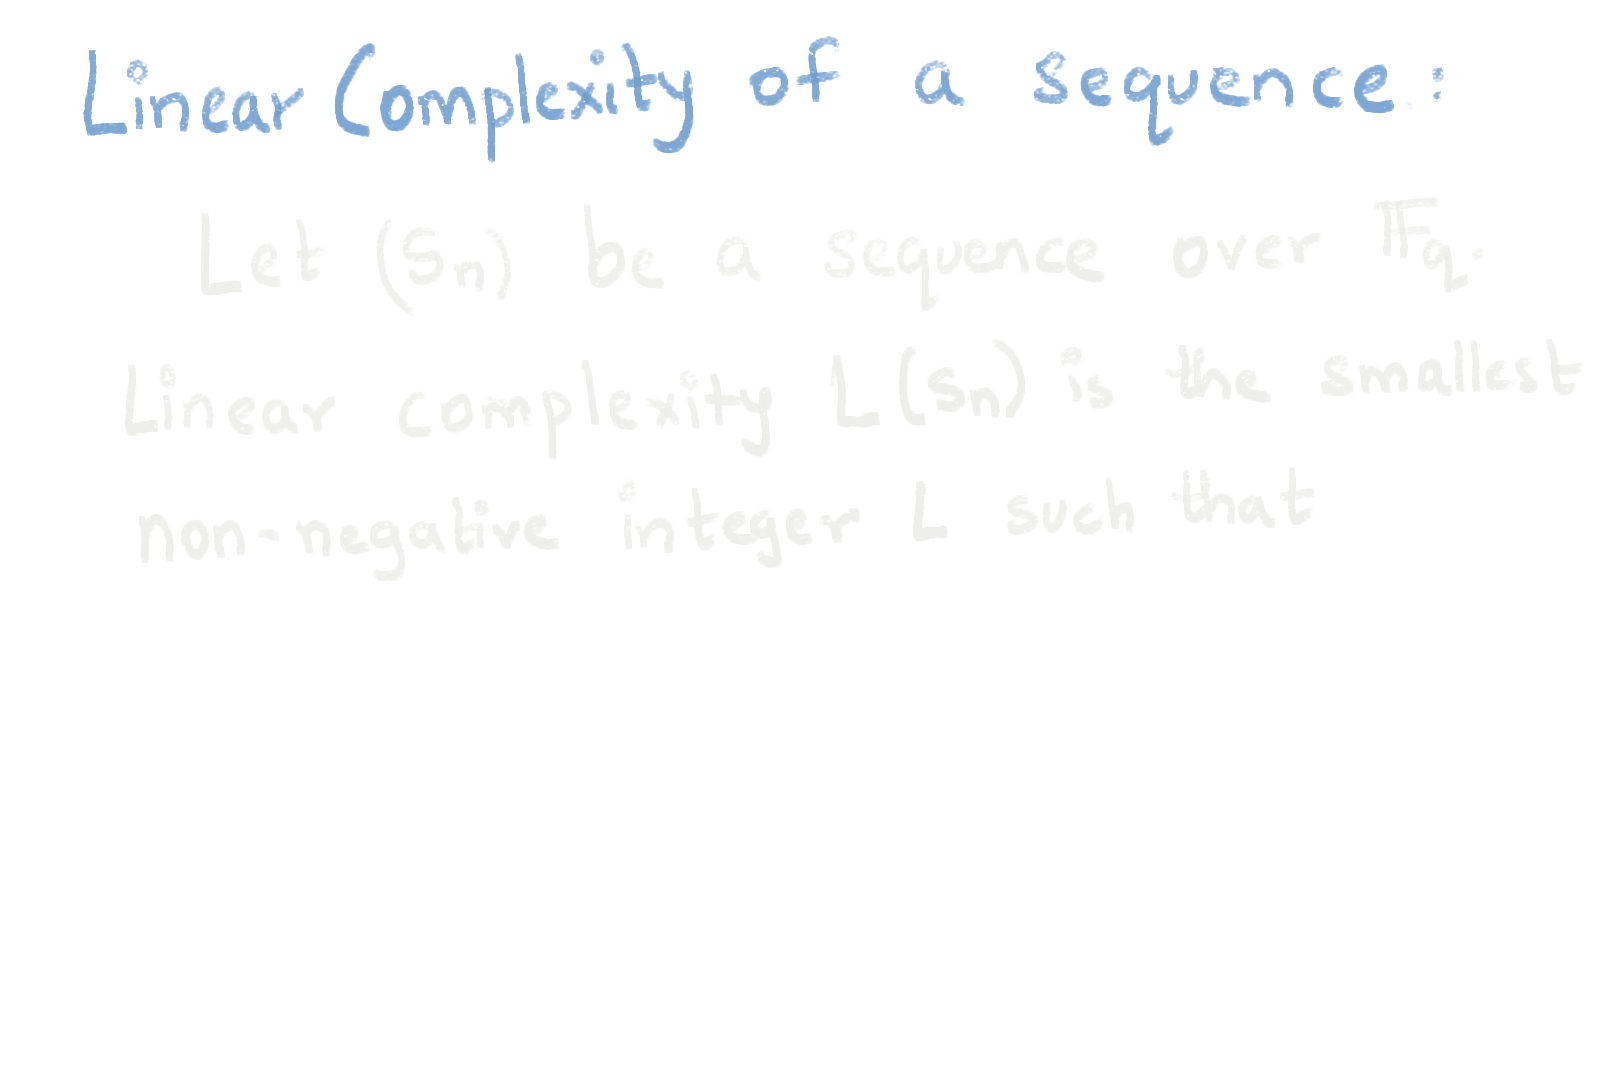 Linear Complexity of a sequence:
Let (Sn) be a sequence over 𝔽q.
Linear complexity L(Sn) is the smallest
non-negative integer L such that